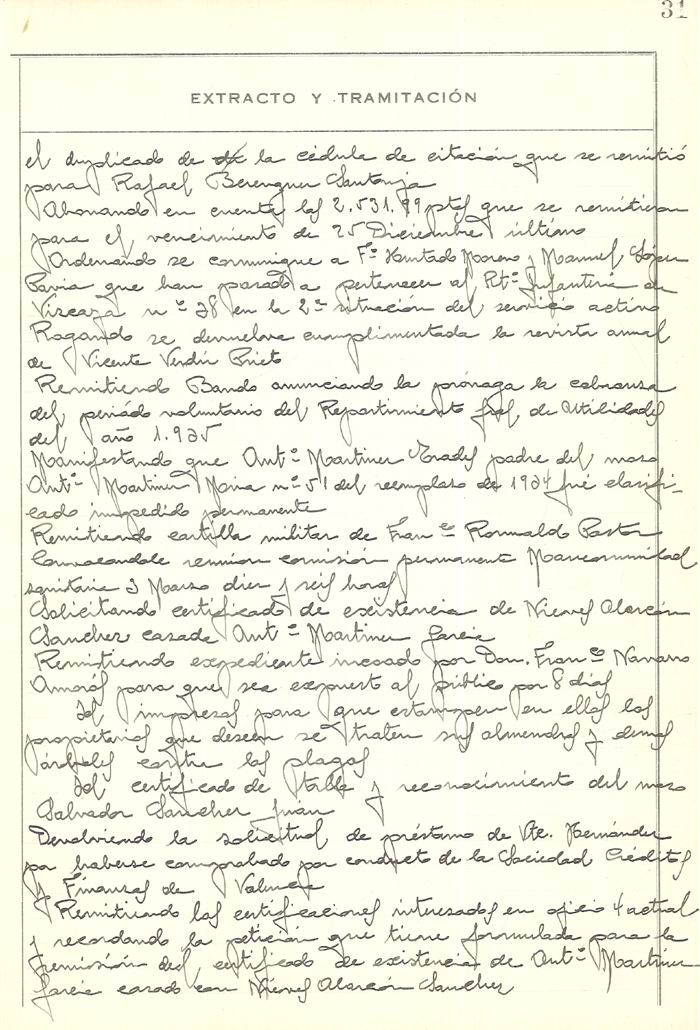 31
EXTRACTO Y TRAMITACIÓN
el duplicado de la cédula de citación que se remitió
para Rafael Berenguer Santonja
Abonando en cuenta las 2.531.99 ptas que se remitieron
para el vencimiento de 25 Diciembre último
Ordenando se comunique a Fº Hurtado Moreno y Manuel López
Pavia que han pasado a pertenecer al Rtº Infantería de
Vizcaya nº 38 en la 2ª situación del servicio activo
Rogando se devuelva cumplimentada la revista anual
de Vicente Verdú Prieto
Remitiendo Bando anunciando la prórroga la cobranza
del periódo voluntario del Repartimiento gral de Utilidades
del año 1.925
Manifestando que Antº Martinez padre del mozo
Antº Martinez nº 51 del reemplazo de 1924 fué clasifi-
cado impedido permanente
Remitiendo cartilla militar de Franco Romualdo Pastor
Convocandole reunion comisión permanente Mancomunidad
sanitaria 3 Marzo diez y seis horas
Solicitando certificado de existencia de Nieves Alarcón
Sanchez casada Antº Martinez Garcia
Remitiendo expediente incoado por Don. Franco Navarro
Amorós para que sea expuesto al público por 8 dias
Id impresos para que estampen en ellos los
propietarios que deseen se traten sus almendros y demas
árboles contra las plagas
Id certificado de talla y reconocimiento del mozo
Salvador Sanchez Juan
Devolviendo la solicitud de préstamo de Vte. Hernández
por haberse comprobado por conducto de la Sociedad Créditos
y Finanzas de Valencia
Remitiendo las certificaciones interesadas en oficio 4 actual
y recordando la petición que tiene formulada para la
remisión del certificado de existencia de Antº Martinez
Garcia casado con Nieves Alarcón Sanchez